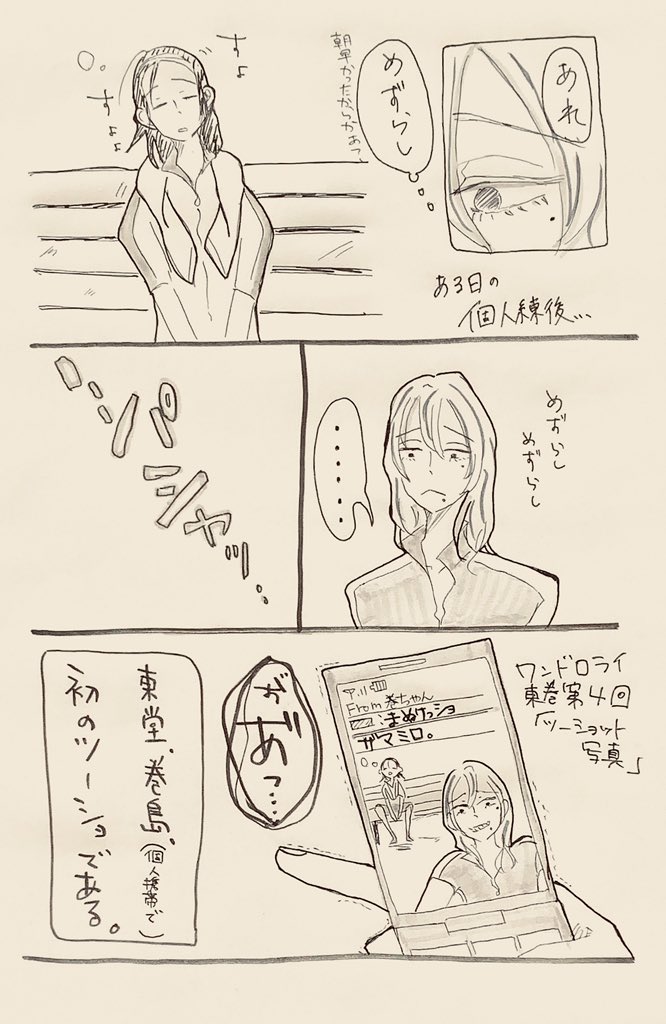 あれ
めずらし
朝早かったからかぁっ
すょ
すょょ
ある日の
個人練後…
めずらし
めずらし
‥‥‥
パシャッ
ワンドロライ
東巻第4回
「ツーショット
写真」
From 巻ちゃん
まぬけっショ
ザマミロ。
があっ…
東堂、巻島、
(個人携帯で)
初のツーショである。